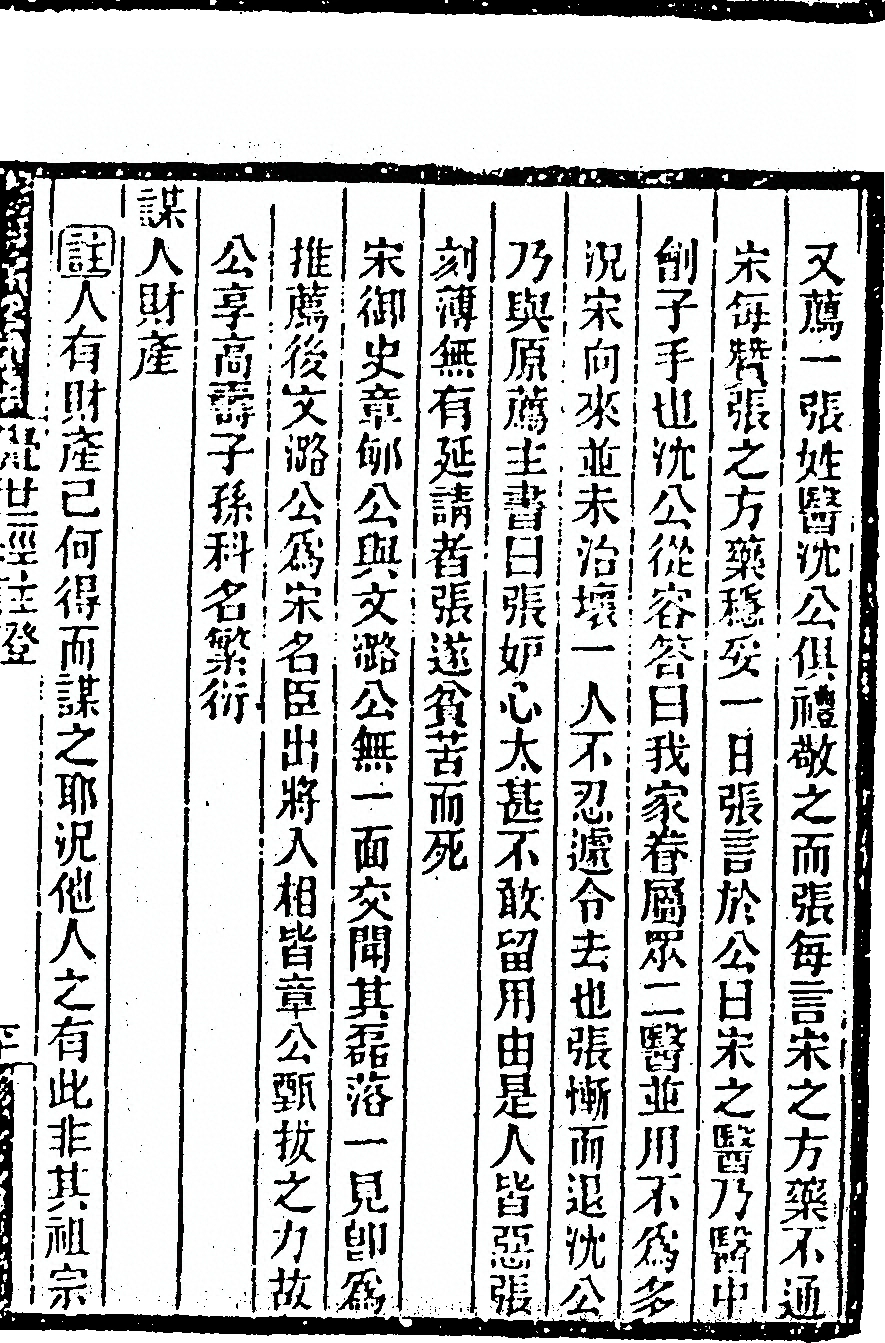 又薦一張姓醫沈公俱禮敬之而張每言宋之方藥不通
宋每贊張之方藥穩妥一日張言於公曰宋之醫乃醫中
劊子手也沈公從容答曰我家眷屬眾二醫並用不為多
況宋向來並未治壞一人不忍遽令去也張慚而退沈公
乃與原薦主書曰張妒心太甚不敢留用由是人皆惡張
刻薄無有延請者張遂貧苦而死
宋御史章郇公與文潞公無一面交聞其磊落一見卽為
推薦後文潞公為宋名臣出將入相皆章公甄拔之力故
公享高壽子孫科名繁衍
謀人財產
註人有財產己何得而謀之耶況他人之有此非其祖宗
覺世經註證